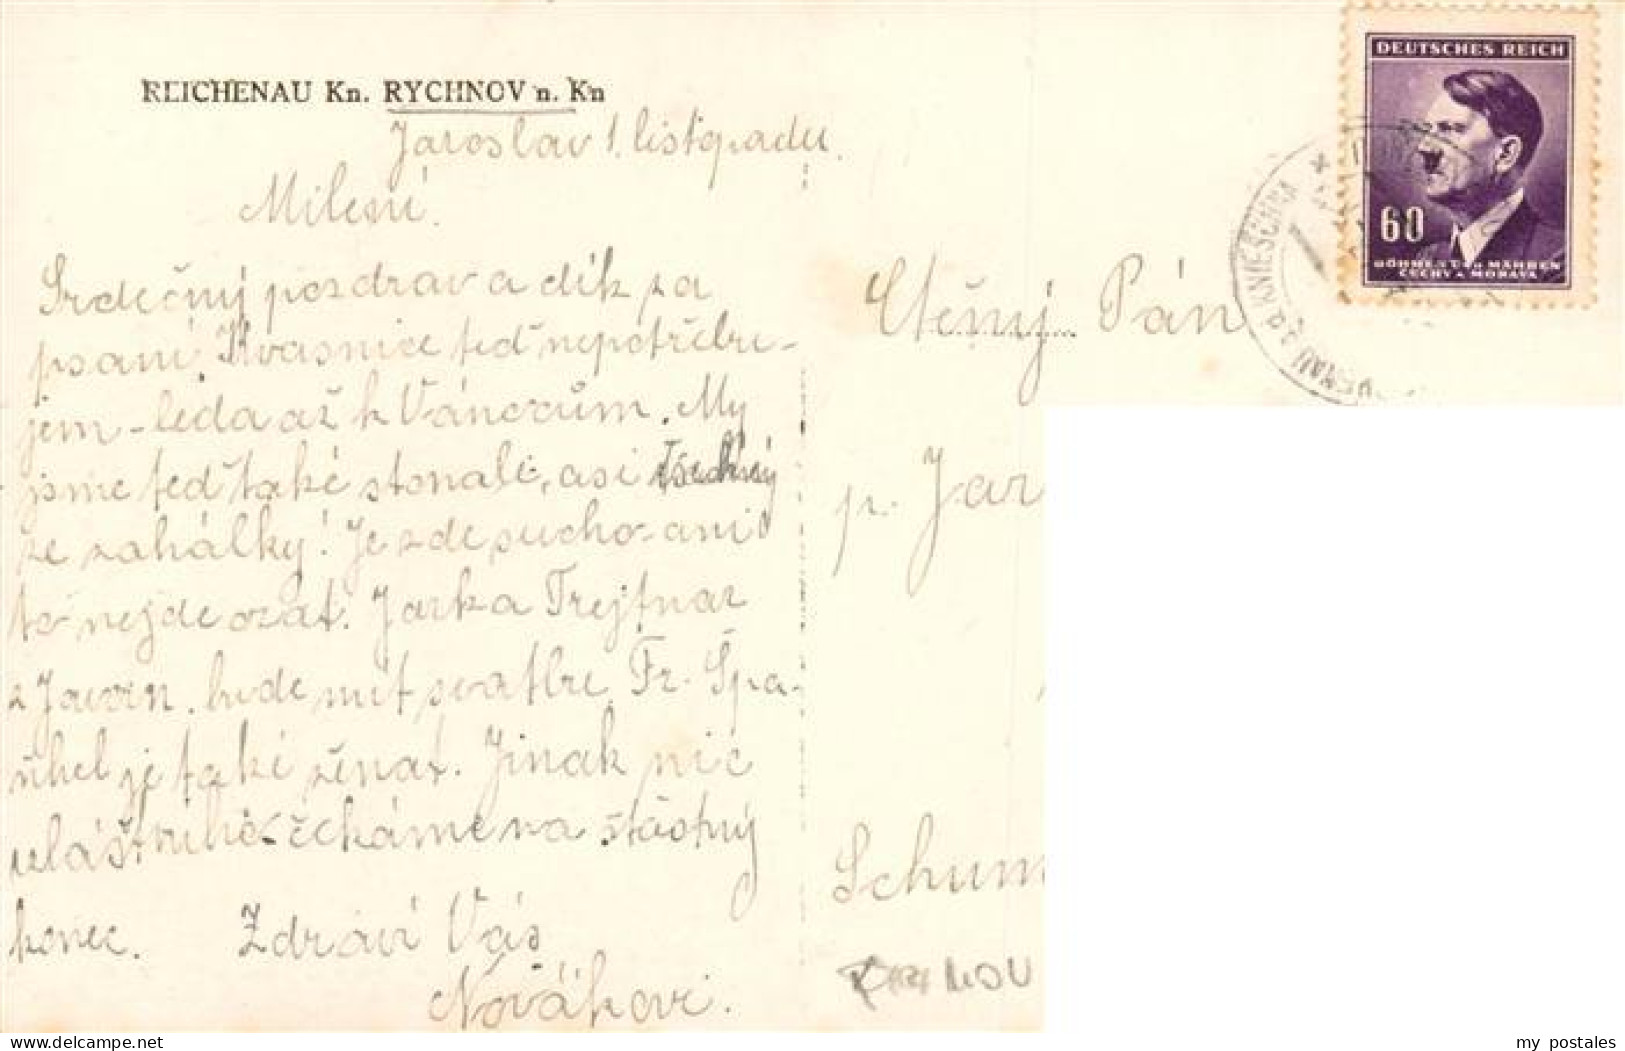 REICHENAU Kn. RYCHNOV n. Kn
Jaroslav 1. listopadu.
Milení.
Srdečný pozdrav a dík za
psaní. Kvasnice teď nepotřebu-
jem - leda až k Vánocům. My
jsme teď také stonali, asi
ze zahálky! Je zde sucho - ani
to nejde orat. Jarka Trejtnar
z Javorn. bude mít svatbu. Fr. Špa-
ňhel je také ženat. Jinak nic
zláštního - čekáme na šťastný
konec. Zdraví Vás
Novákovi.
DEUTSCHES REICH
60
BÖHMEN UND MÄHREN
ČECHY A MORAVA
KNIESCHNA
Ctěný Pán
p. Jar
Schum
my postales